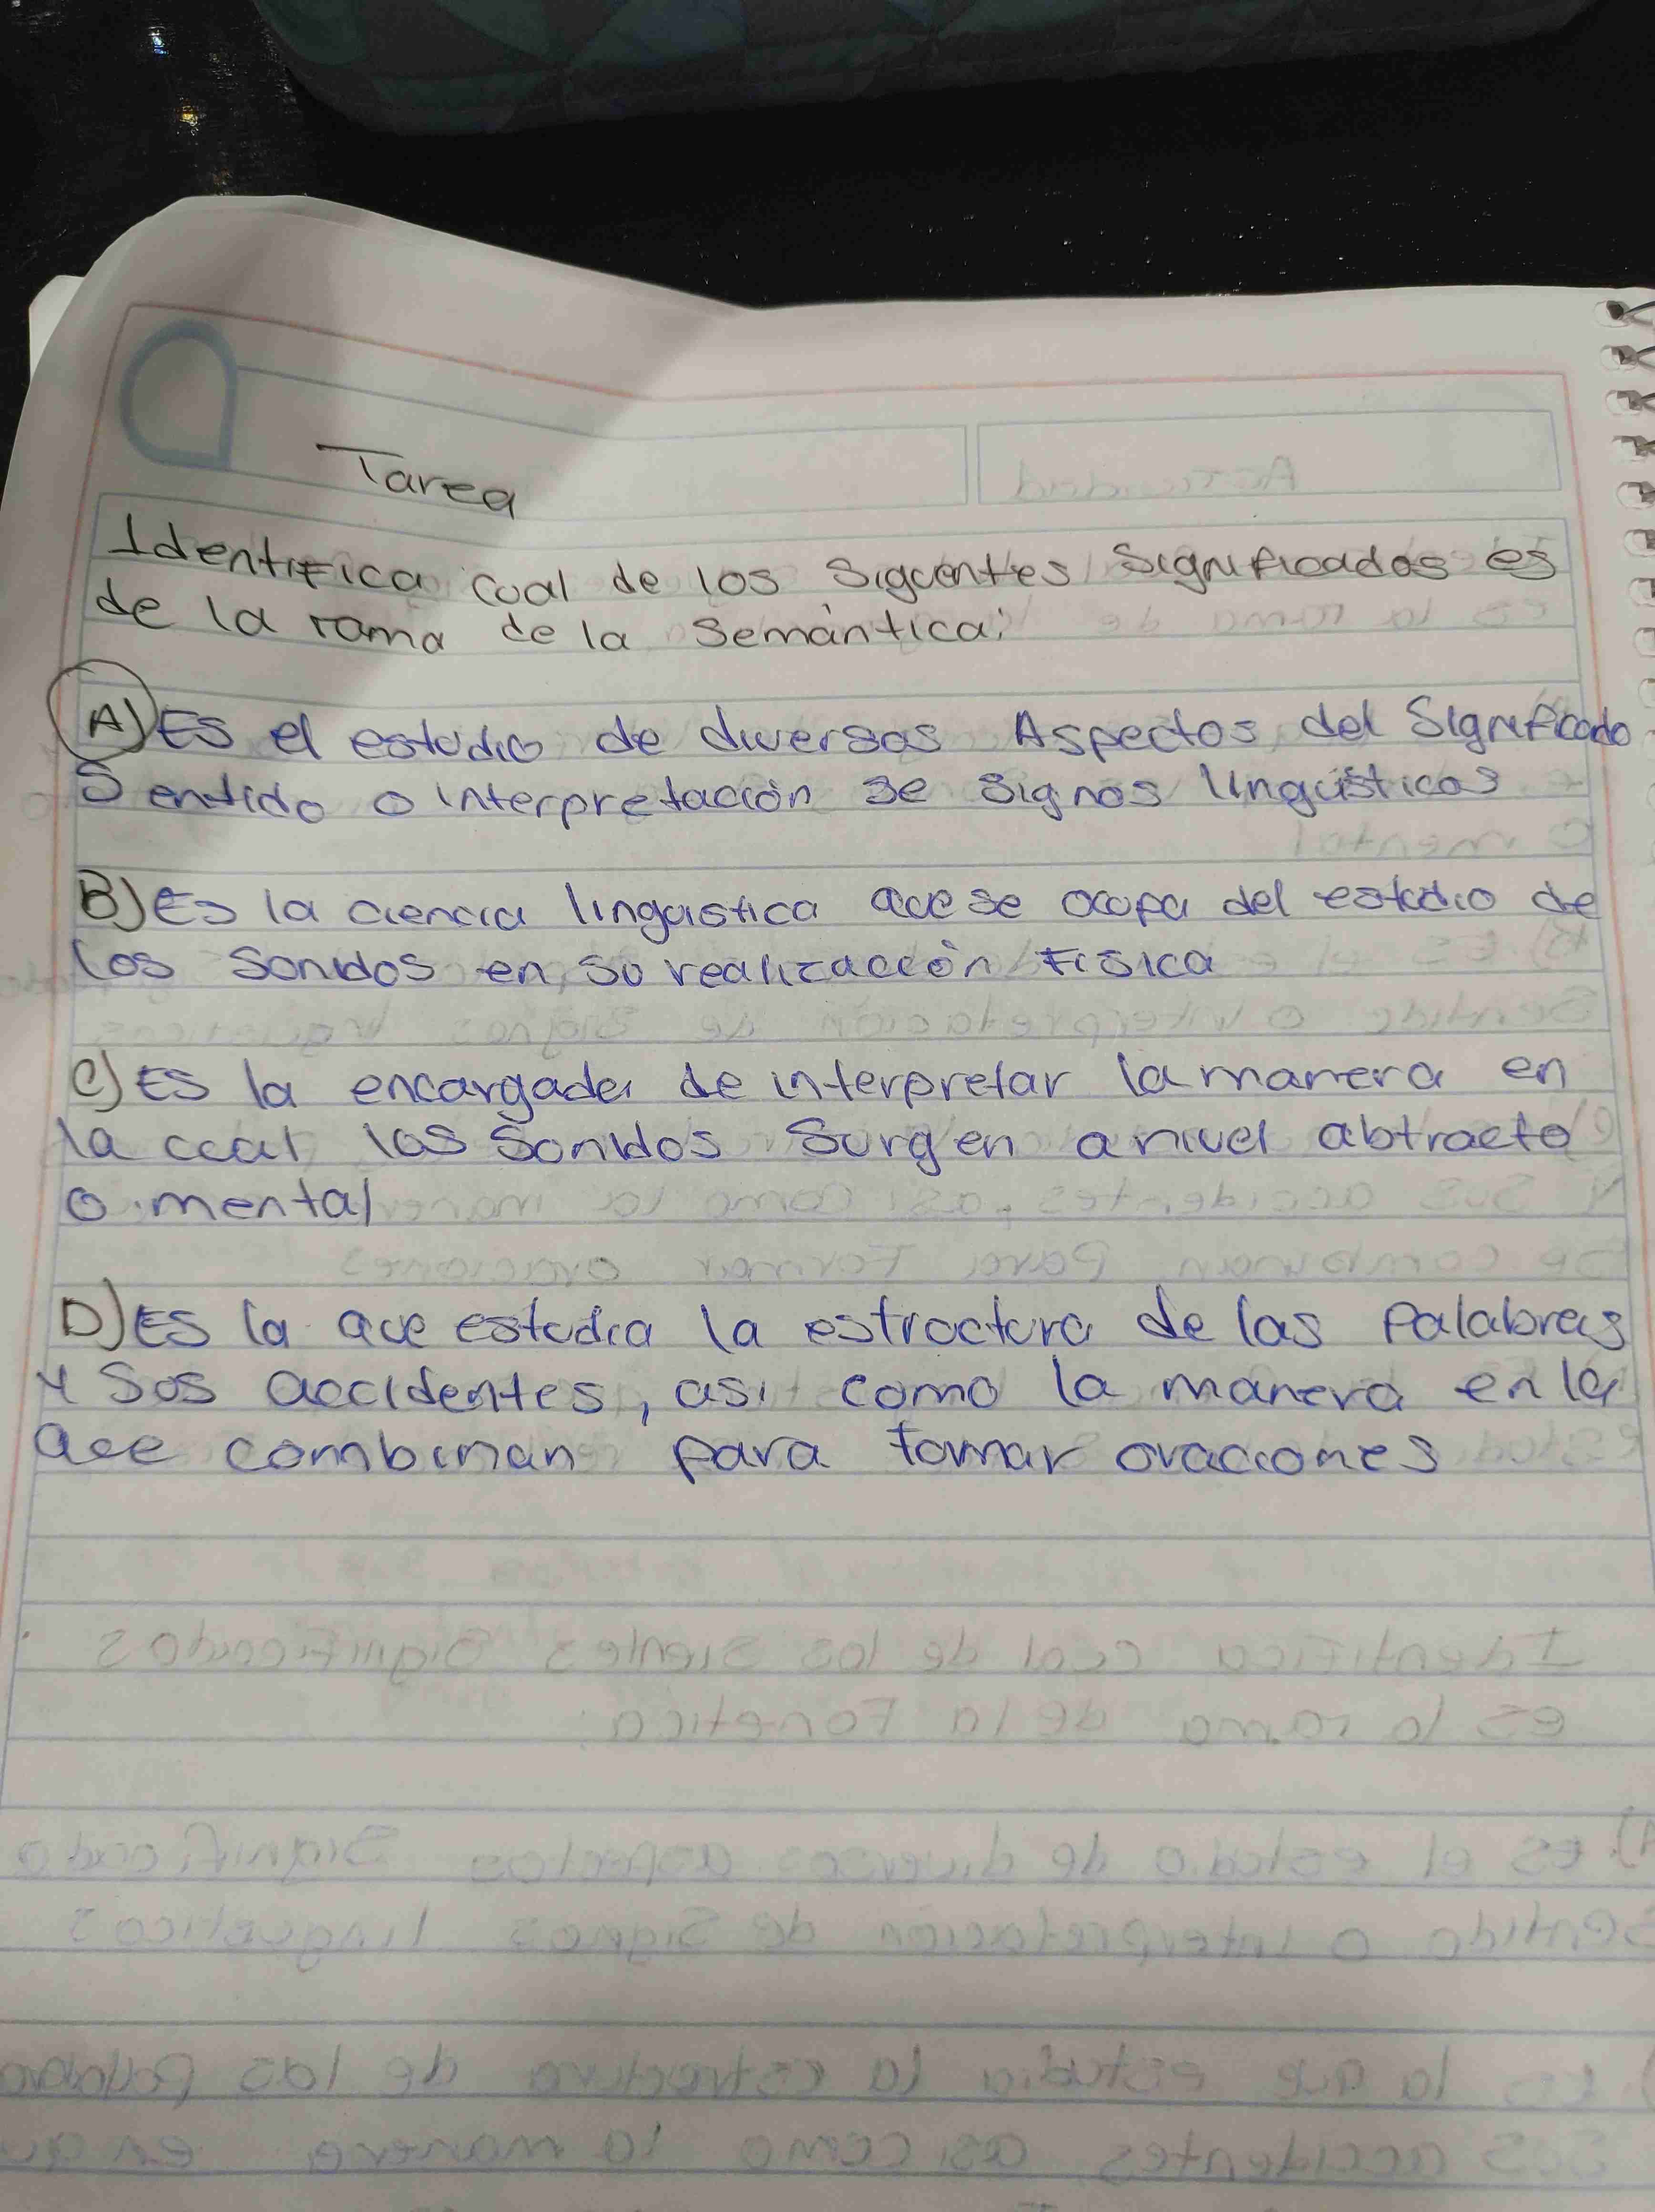 Tarea
Identifica cual de los Siguentes Significados es
de la rama de la Semántica:
A) Es el estudio de diversos Aspectos del Significado
Sentido o interpretación se signos lingüísticos
B) Es la ciencia lingüistica que se ocupa del estudio de
los Sonidos en su realización Fisica
C) Es la encargada de interpretar la manera en
la cual los Sonidos Surgen a nivel abtracto
o mental
D) Es la que estudia la estructura de las Palabras
y Sus accidentes, asi como la manera en la
que combinan para formar oraciones